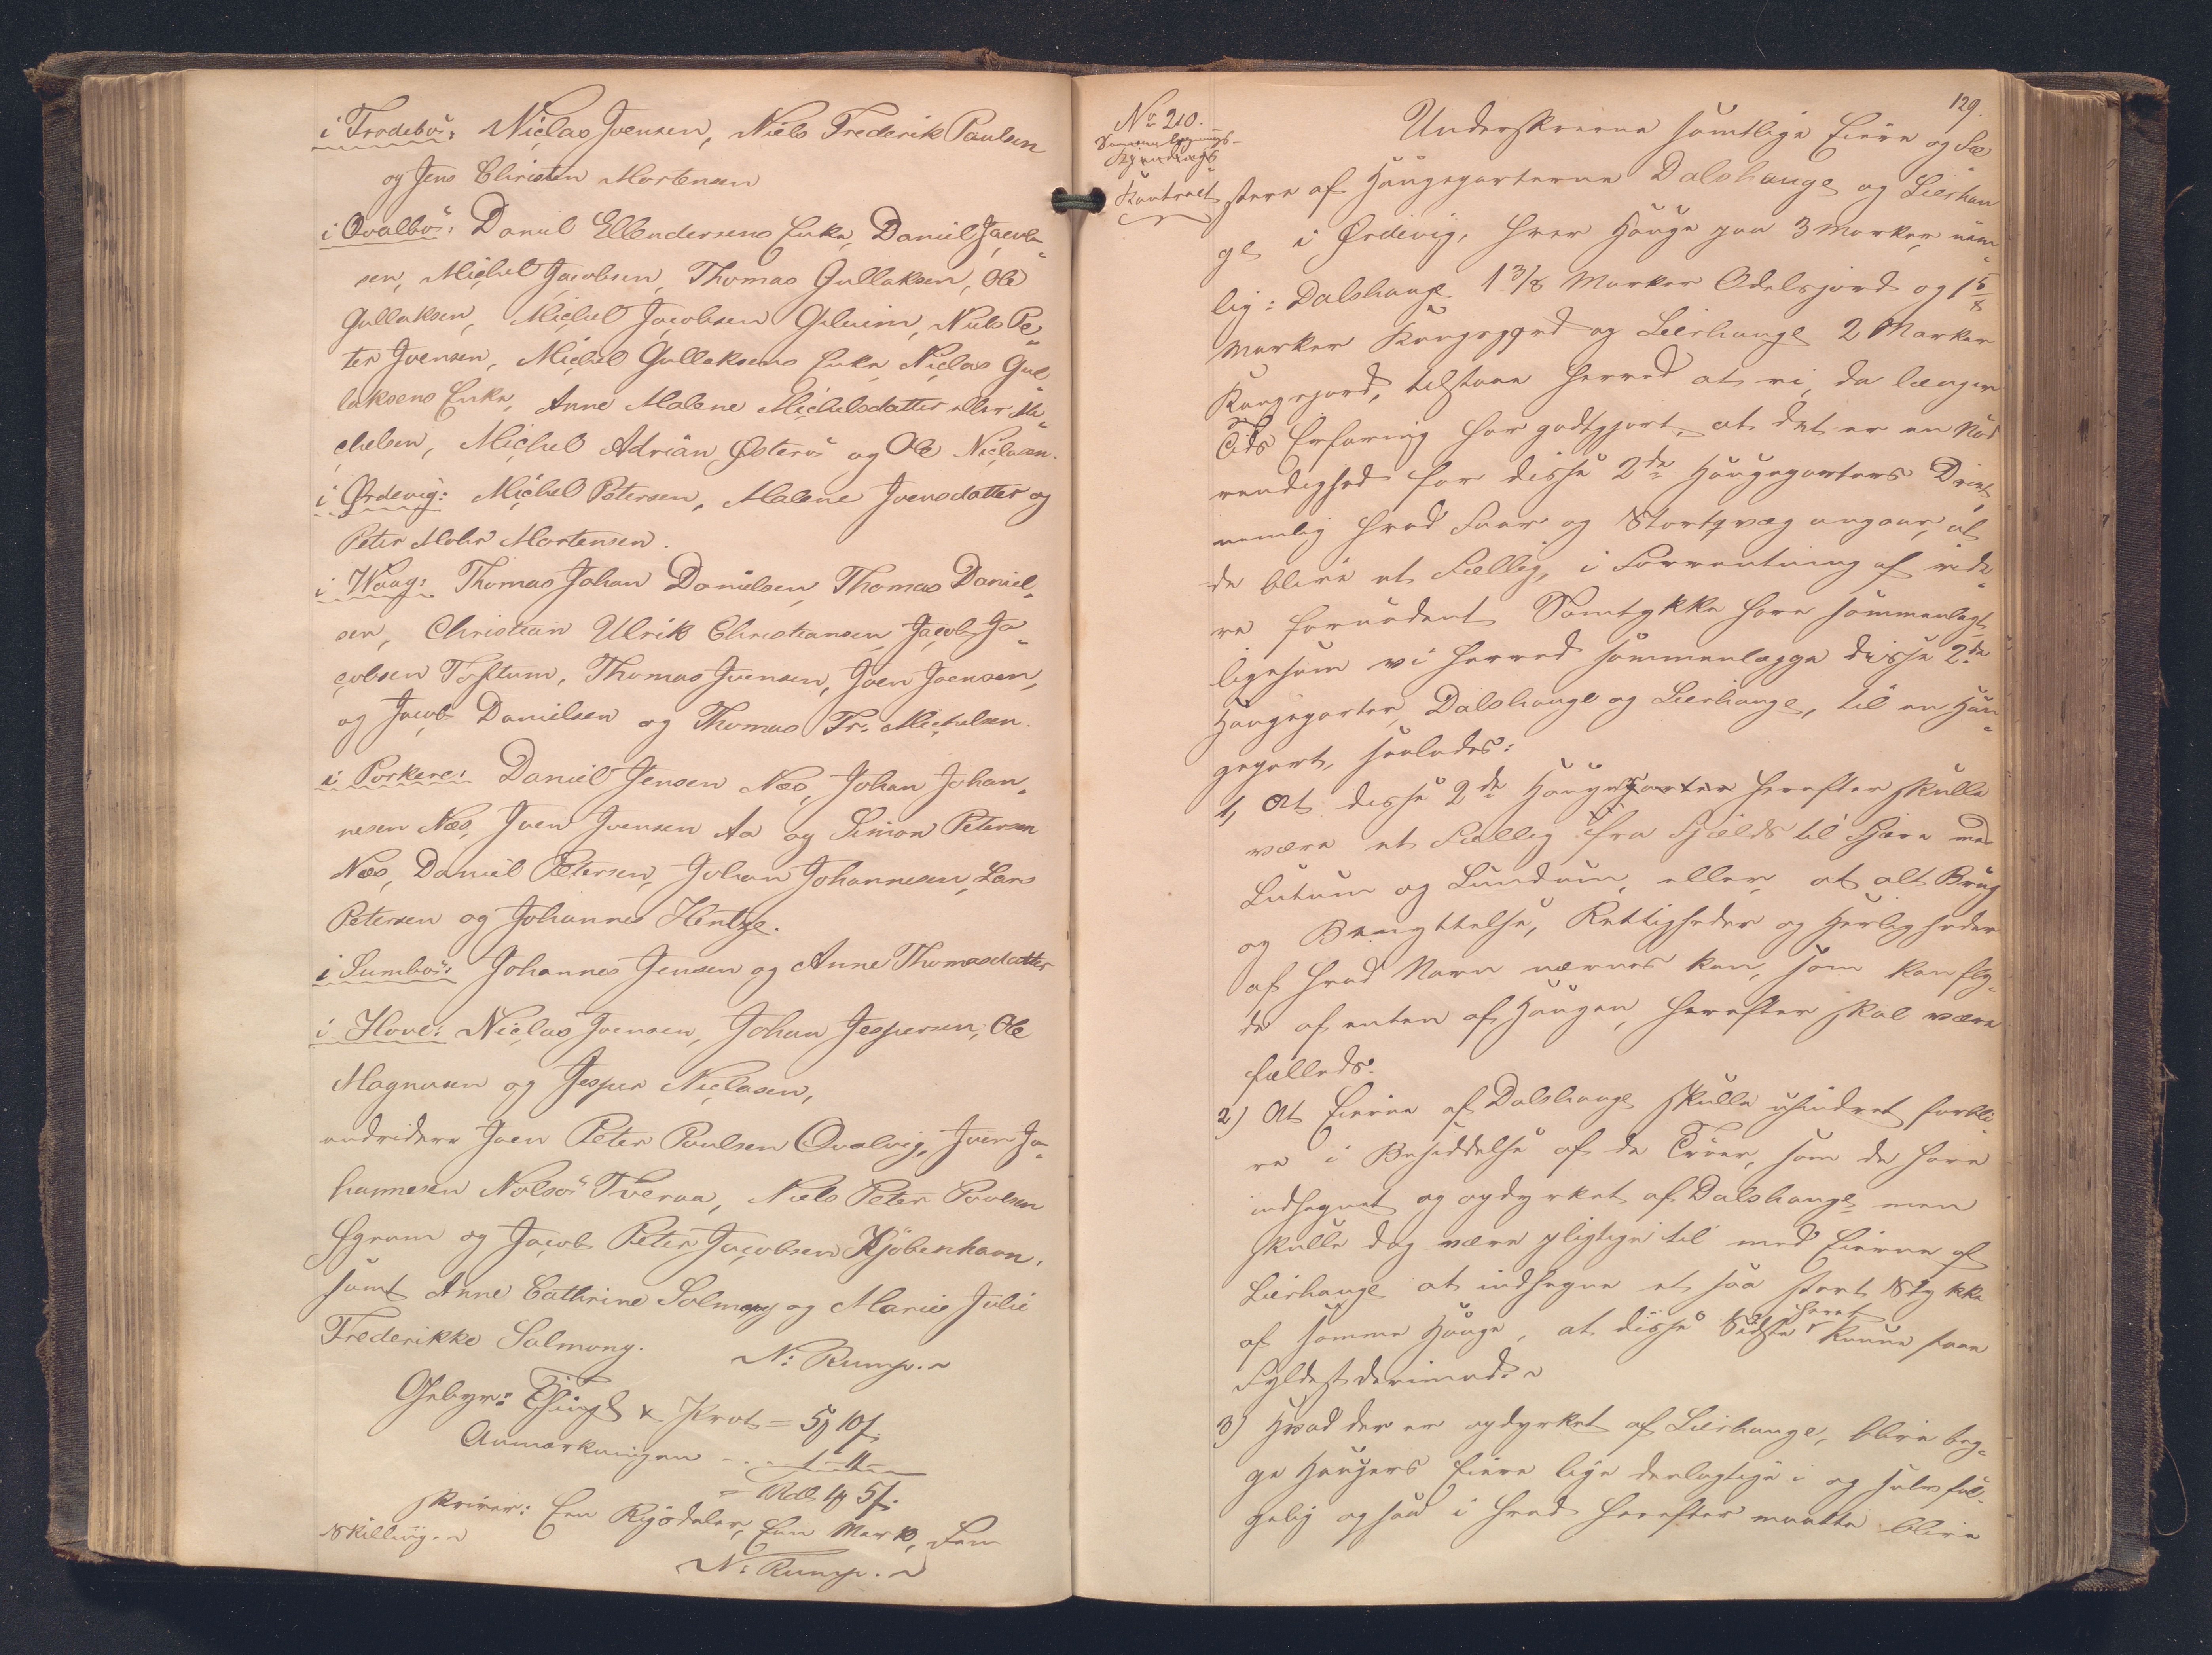 i Frodebö: Niclas Joensen, Niels Frederik Paulsen
og Jens Christen Mortensen
i Qvalbö: Daniel Ellendersens Enke, Daniel Jacob-
sen, Michel Jacobsen, Thomas Gullaksen, Ole
Gullaksen, Michel Jacobsen Gileim, Niels Pe-
ter Joensen, Michel Gullaksens Enke, Niclas Gul-
laksens Enke, Anne Malene Michelsdatter eller Mi-
chelsen, Michel Adrian Østerö og Ole Niclasen.
i Ørdevig: Michel Petersen, Malene Joensdatter og
Peter Mohr Mortensen.
i Waag: Thomas Johan Danielsen, Thomas Daniel-
sen, Christian Ulrik Christiansen, Jacob Ja-
cobsen Toftum, Thomas Joensen, Joen Joensen,
og Jacob Danielsen og Thomas Fr. Michelsen.
i Porkere: Daniel Jensen Næs, Johan Johan-
nesen Næs, Joen Joensen Aa og Simon Petersen
Næs, Daniel Petersen, Johan Johannesen, Lars
Petersen og Johannes Hentze.
i Sumbö: Johannes Jensen og Anne Thomasdatter
i Hove: Niclas Joensen, Johan Jespersen, Ole
Magnusen og Jesper Niclasen,
endvidere Joen Peter Poulsen Qvalvig, Joen Jo-
hannesen Nolsö Tveraa, Niels Peter Poulsen
og Jacob Peter Jacobsen Kjöbenhavn.
samt Anne Cathrine Solmony og Marie Julie
Frederikke Salmony.
N: Rump.
Gebyr: Thingl & Prot = 5 10
Anmærkningen
= Rdl 1 5
skriver: Een Rigsdaler, Een Mark, Fem
Skilling.
N: Rump.
129.
No 210.
Sammenlægnings-
Kontrakt
Underskrevne samtlige Eiere og Fæ-
stere af Haugeparterne Dalshauge og Lieshau-
ge i Ørdevig, hver Hauge paa 3 Marker, nem-
lig: Dalshauge 1 3/8 Marker Odelsjord og 1 5/8
Marker Kongsjord og Lieshauge 2 Marker
Kongsjord, tilstaae herved at vi, da længere
Tids Erfaring har godtgjort, at det er en Nöd-
vendighed for disse 2de Haugeparters Drivt
nemlig hvad Faar og Stortqvæg angaaer, at
de blive et Fællig, i Forventning af vide-
re fornödent Samtykke have sammenlagt
ligesom vi herved sammenlægge disse 2de
Haugeparter, Dalshauge og Lieshauge, til en Hau-
gepart, saaledes:
1, At disse 2de Haugeparter herefter skulle
være et Fællig fra Fjelds til Fjære med
Lutum og Lundum, eller, at alt Brug
og Benyttelse, Rettigheder og Herligheder
af hvad Navn nævnes kan, som kan fly-
de af enten af Haugen, herefter skal være
fælleds.
2) At Eierne af Dalshauge skulle uhindret forbli-
ve i Besiddelse af de Tröer, som de have
indhegnet og opdyrket af Dalshauge, men
skulle dog være pligtige til med Eierne af
Lieshauge at indhegne et saa stort Stykke
af samme Hauge, at disse Sidste heraf kunne faae
Fyldest derimod.
3) Hvad der er opdyrket af Lieshauge, blive beg-
ge Haugers Eiere lige deelagtige i og selvföl-
gelig ogsaa i hvad herefter maatte blive